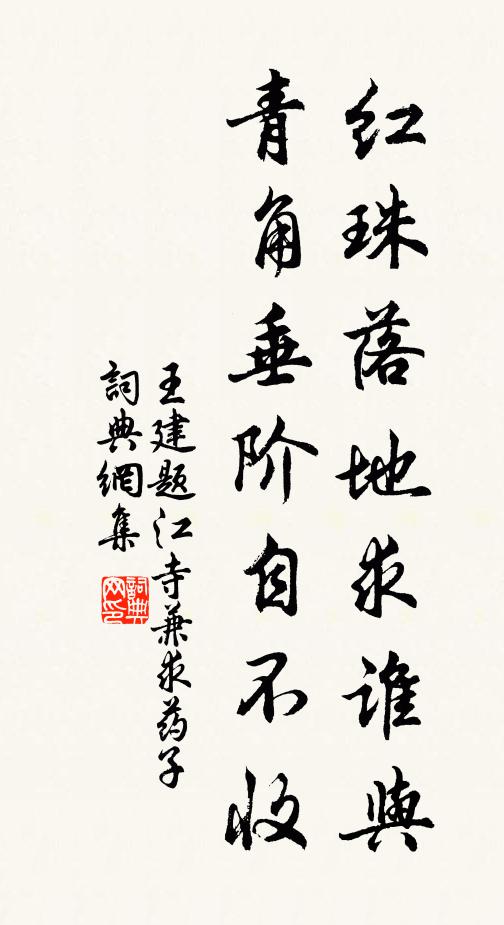 红珠落地求谁與
青角垂阶自不收
王建题江寺兼求药子
詞典網集
詞典
网印